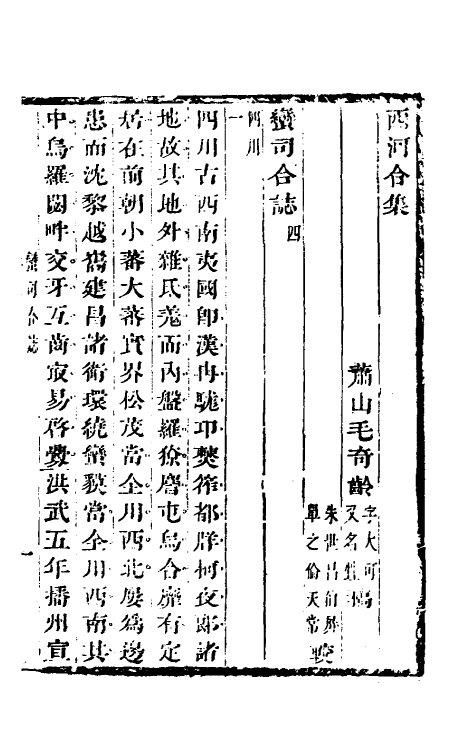 西河合集
蕭山毛奇齡字大可
又名甡
朱世昌
單之倫天常較
蠻司合誌四
四川一
四川古西南夷國即漢冉駹卭僰筰都牂柯夜郎諸
地故其地外雜氐羌而內盤羅獠麕屯烏合靡有定
居在前朝小蕃大蕃實界松茂當全川西北屡為邊
患而沈黎越巂建昌諸衛環繞蠻貘當全川西南其
中烏羅閟畔交牙互啇㝡易啓釁洪武五年播州宣
蠻司合誌
一